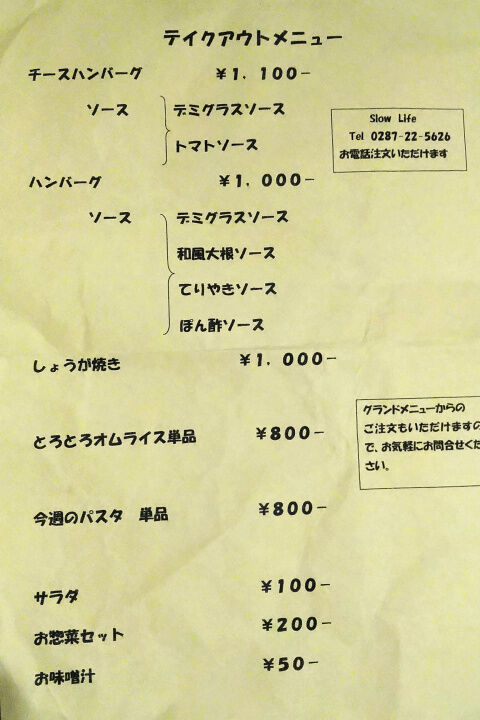 テイクアウトメニュー
チースハンバーグ ￥1，100−
ソース デミグラスソース
トマトソース
Slow Life
Tel 0287-22-5626
お電話注文いただけます
ハンバーグ ￥1，000−
ソース デミグラスソース
和風大根ソース
てりやきソース
ぽん酢ソース
しょうが焼き ￥1，000−
グランドメニューからの
ご注文もいただけますの
で、お気軽にお問合せくだ
さい。
とろとろオムライス単品 ￥800−
今週のパスタ 単品 ￥800−
サラダ ￥100−
お惣菜セット ￥200−
お味噌汁 ￥50−